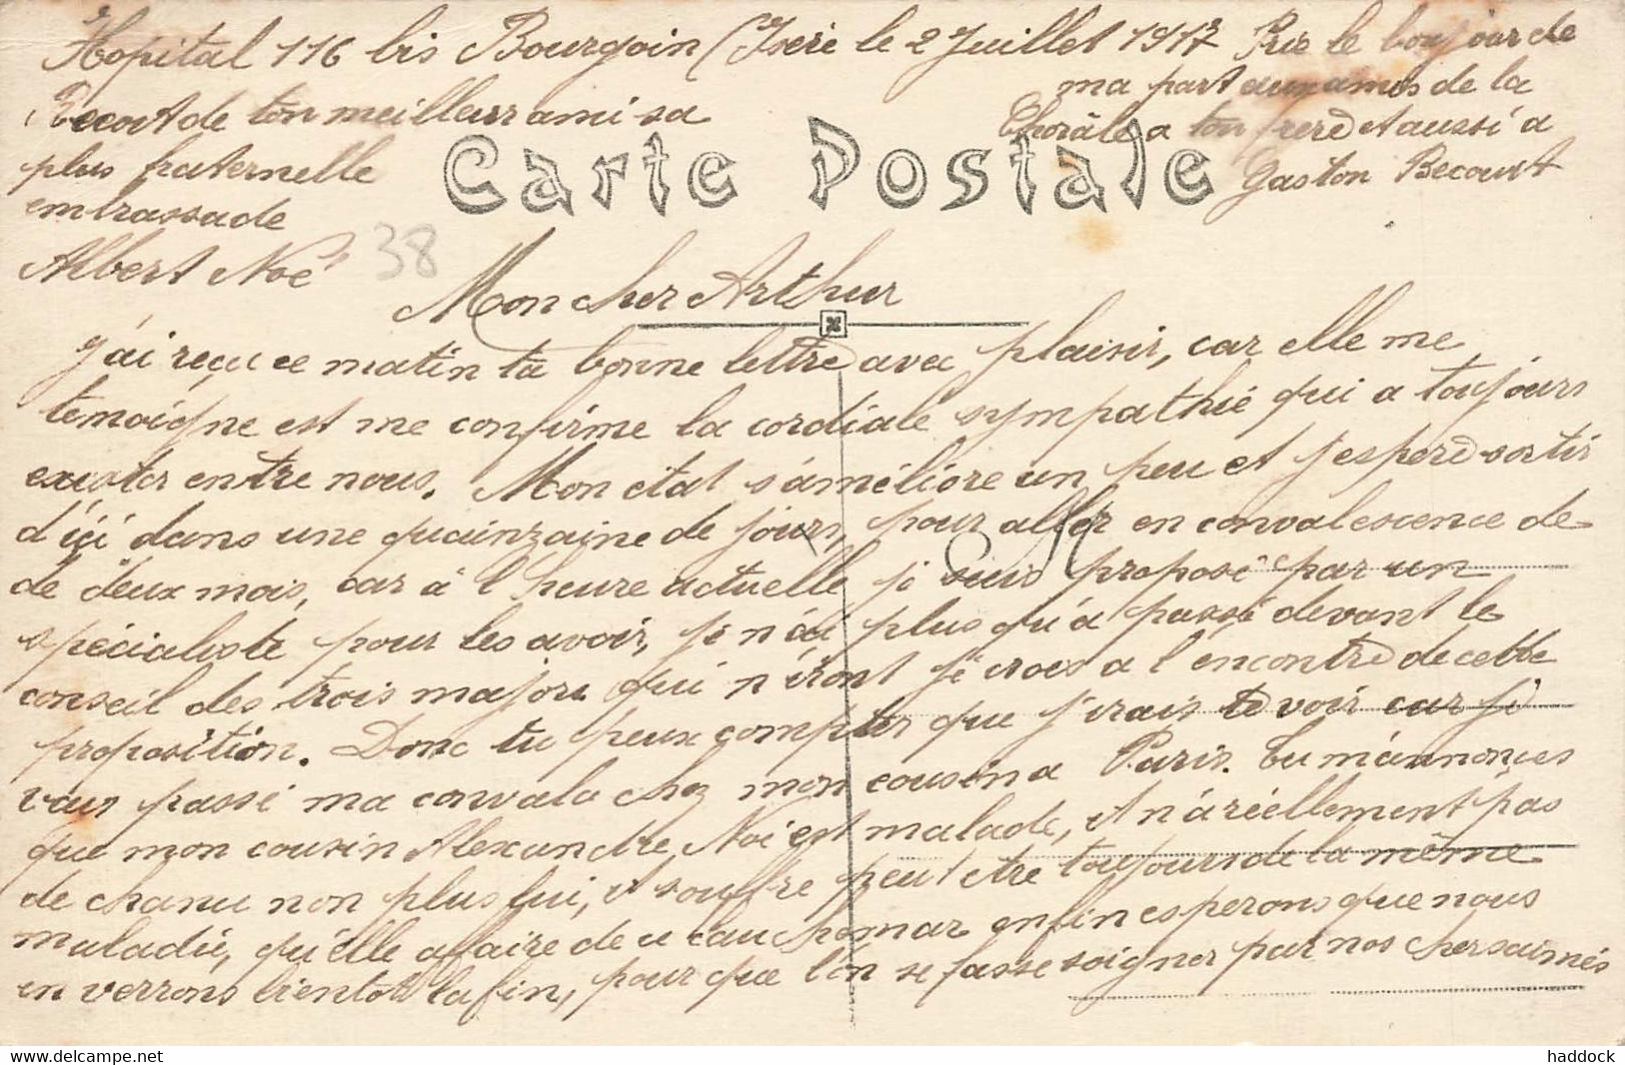 Hopital 116 bis Bourgoin (Isère le 2 Juillet 1917
Mon cher Arthur
J'ai reçu ce matin ta bonne lettre avec plaisir, car elle me
temoigne est me confirme la cordiale sympathie qui a toujours
exister entre nous. Mon etat s'améliore un peu et j'espere sortir
d'içi dans une quainzaine de jours, pour aller en convalescence de
de deux mois, car à l'heure actuelle je suis proposé par un
spécialiste pour les avoir, je n'ai plus qu'a passé devant le
conseil des trois majors qui n'iront je crois a l'encontre de cette
proposition. Donc tu peux compter que j'irais te voir car je
vais passé ma convalo chez mon cousin a Paris. Tu m'annonces
que mon cousin Alexandre Noé est malade, il n'a réellement pas
de chance non plus lui, il souffre peut etre toujours de la même
maladie, qu'elle affaire de ce cauchemar enfin esperons que nous
en verrons bientot la fin, pour que l'on se fasse soigner par nos chers aimés
Recoit de ton meilleur ami sa
plus fraternelle
embrassade
Albert Noé
38
ma part aux amis de la
Chorâle a ton frere et aussi a
Gaston Becourt
Carte Postale
haddock